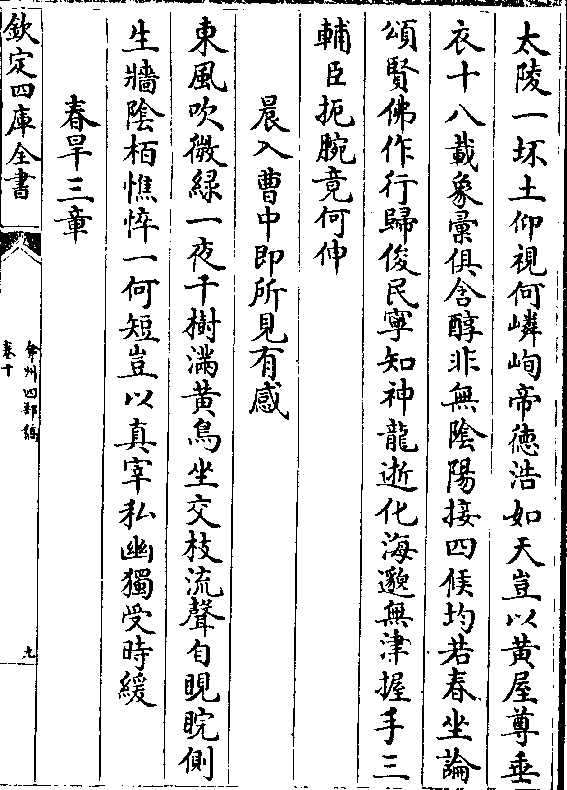 太陵一抔土仰視何嶙峋帝徳浩如天豈以黄屋尊垂
衣十八載象彚俱含醇非無陰陽接四候均若春坐論
頌賢佛作行歸俊民寧知神龍逝化海邈無津握手三
輔臣扼腕竟何伸
晨入曹中即所見有感
東風吹微緑一夜千樹滿黄鳥坐交枝流聲自睍睆側
生牆陰栢憔悴一何短豈以真宰私幽獨受時緩
春旱三章
欽定四庫全書
弇州四部稿
卷十
九